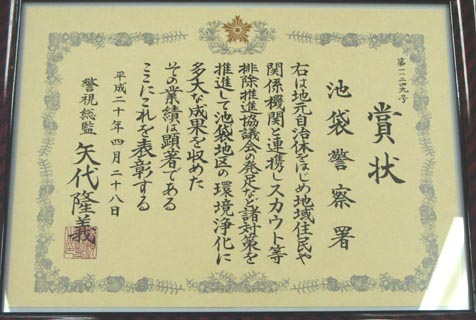 賞状
第一二四九号
池袋警察署
右は地元自治体をはじめ地域住民や
関係機関と連携しスカウト等
排除推進協議会の発足など諸対策を
推進して池袋地区の環境浄化に
多大な成果を収めた
その業績は顕著である
ここにこれを表彰する
平成二十年四月二十八日
警視総監 矢代隆義